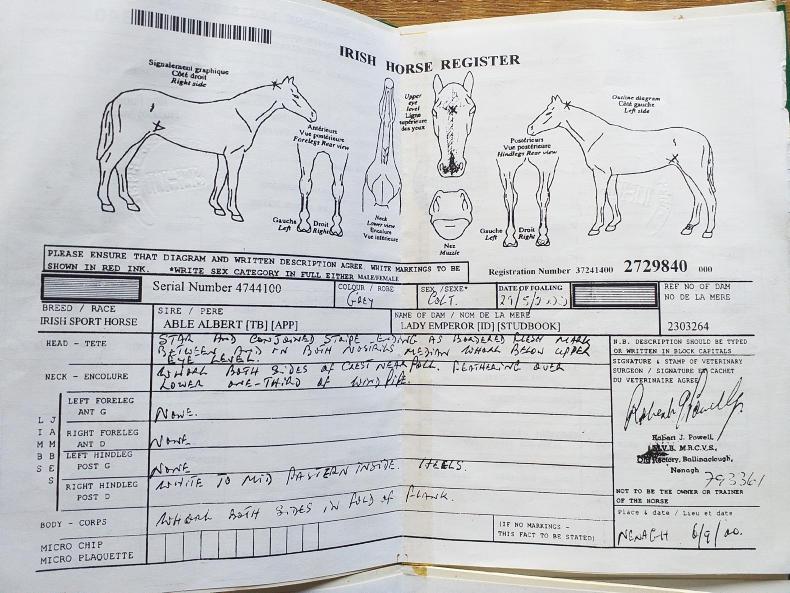 IRISH HORSE REGISTER
Signalement graphique
Côté droit
Right side
Antérieurs
Vue postérieure
Forelegs Rear view
Gauche
Left
Droit
Right
Neck
Lower view
Encolure
Vue inférieure
Upper
eye
level
Ligne
supérieure
des yeux
Nez
Muzzle
Postérieurs
Vue postérieure
Hindlegs Rear view
Gauche
Left
Droit
Right
Outline diagram
Côté gauche
Left side
PLEASE ENSURE THAT DIAGRAM AND WRITTEN DESCRIPTION AGREE. WHITE MARKINGS TO BE
SHOWN IN RED INK. *WRITE SEX CATEGORY IN FULL EITHER MALE/FEMALE
Registration Number 37241400 2729840 000
Serial Number 4744100
COLOUR / ROBE
GREY
SEX / SEXE*
COLT.
DATE OF FOALING
REF NO OF DAM
NO DE LA MERE
BREED / RACE
IRISH SPORT HORSE
SIRE / PERE
ABLE ALBERT [TB] [APP]
NAME OF DAM / NOM DE LA MERE
LADY EMPEROR [ID] [STUDBOOK]
2303264
HEAD - TETE
STAR AND CONJOINED STRIPE ENDING AS BORDERED FLESH MARK
BETWEEN AND IN BOTH NOSTRILS MEDIAN WHORL BELOW UPPER
EYE LEVEL
NECK - ENCOLURE
WHORL BOTH SIDES OF CREST NEAR POLL. FEATHERING OVER
LOWER ONE-THIRD OF WINDPIPE.
LIMBS
JAMBES
LEFT FORELEG
ANT G
NONE.
RIGHT FORELEG
ANT D
NONE
LEFT HINDLEG
POST G
NONE
RIGHT HINDLEG
POST D
WHITE TO MID PASTERN INSIDE. HEELS.
BODY - CORPS
WHORL BOTH SIDES IN FOLD OF FLANK.
(IF NO MARKINGS -
THIS FACT TO BE STATED)
MICRO CHIP
MICRO PLAQUETTE
N.B. DESCRIPTION SHOULD BE TYPED
OR WRITTEN IN BLOCK CAPITALS
SIGNATURE & STAMP OF VETERINARY
SURGEON / SIGNATURE ET CACHET
DU VETERINAIRE AGREE
Robert J. Powell
Robert J. Powell,
M.V.B. M.R.C.V.S.,
Old Rectory, Ballinaclough,
Nenagh
793361
NOT TO BE THE OWNER OR TRAINER
OF THE HORSE
Place & date / Lieu et date
NENAGH 6/9/00.